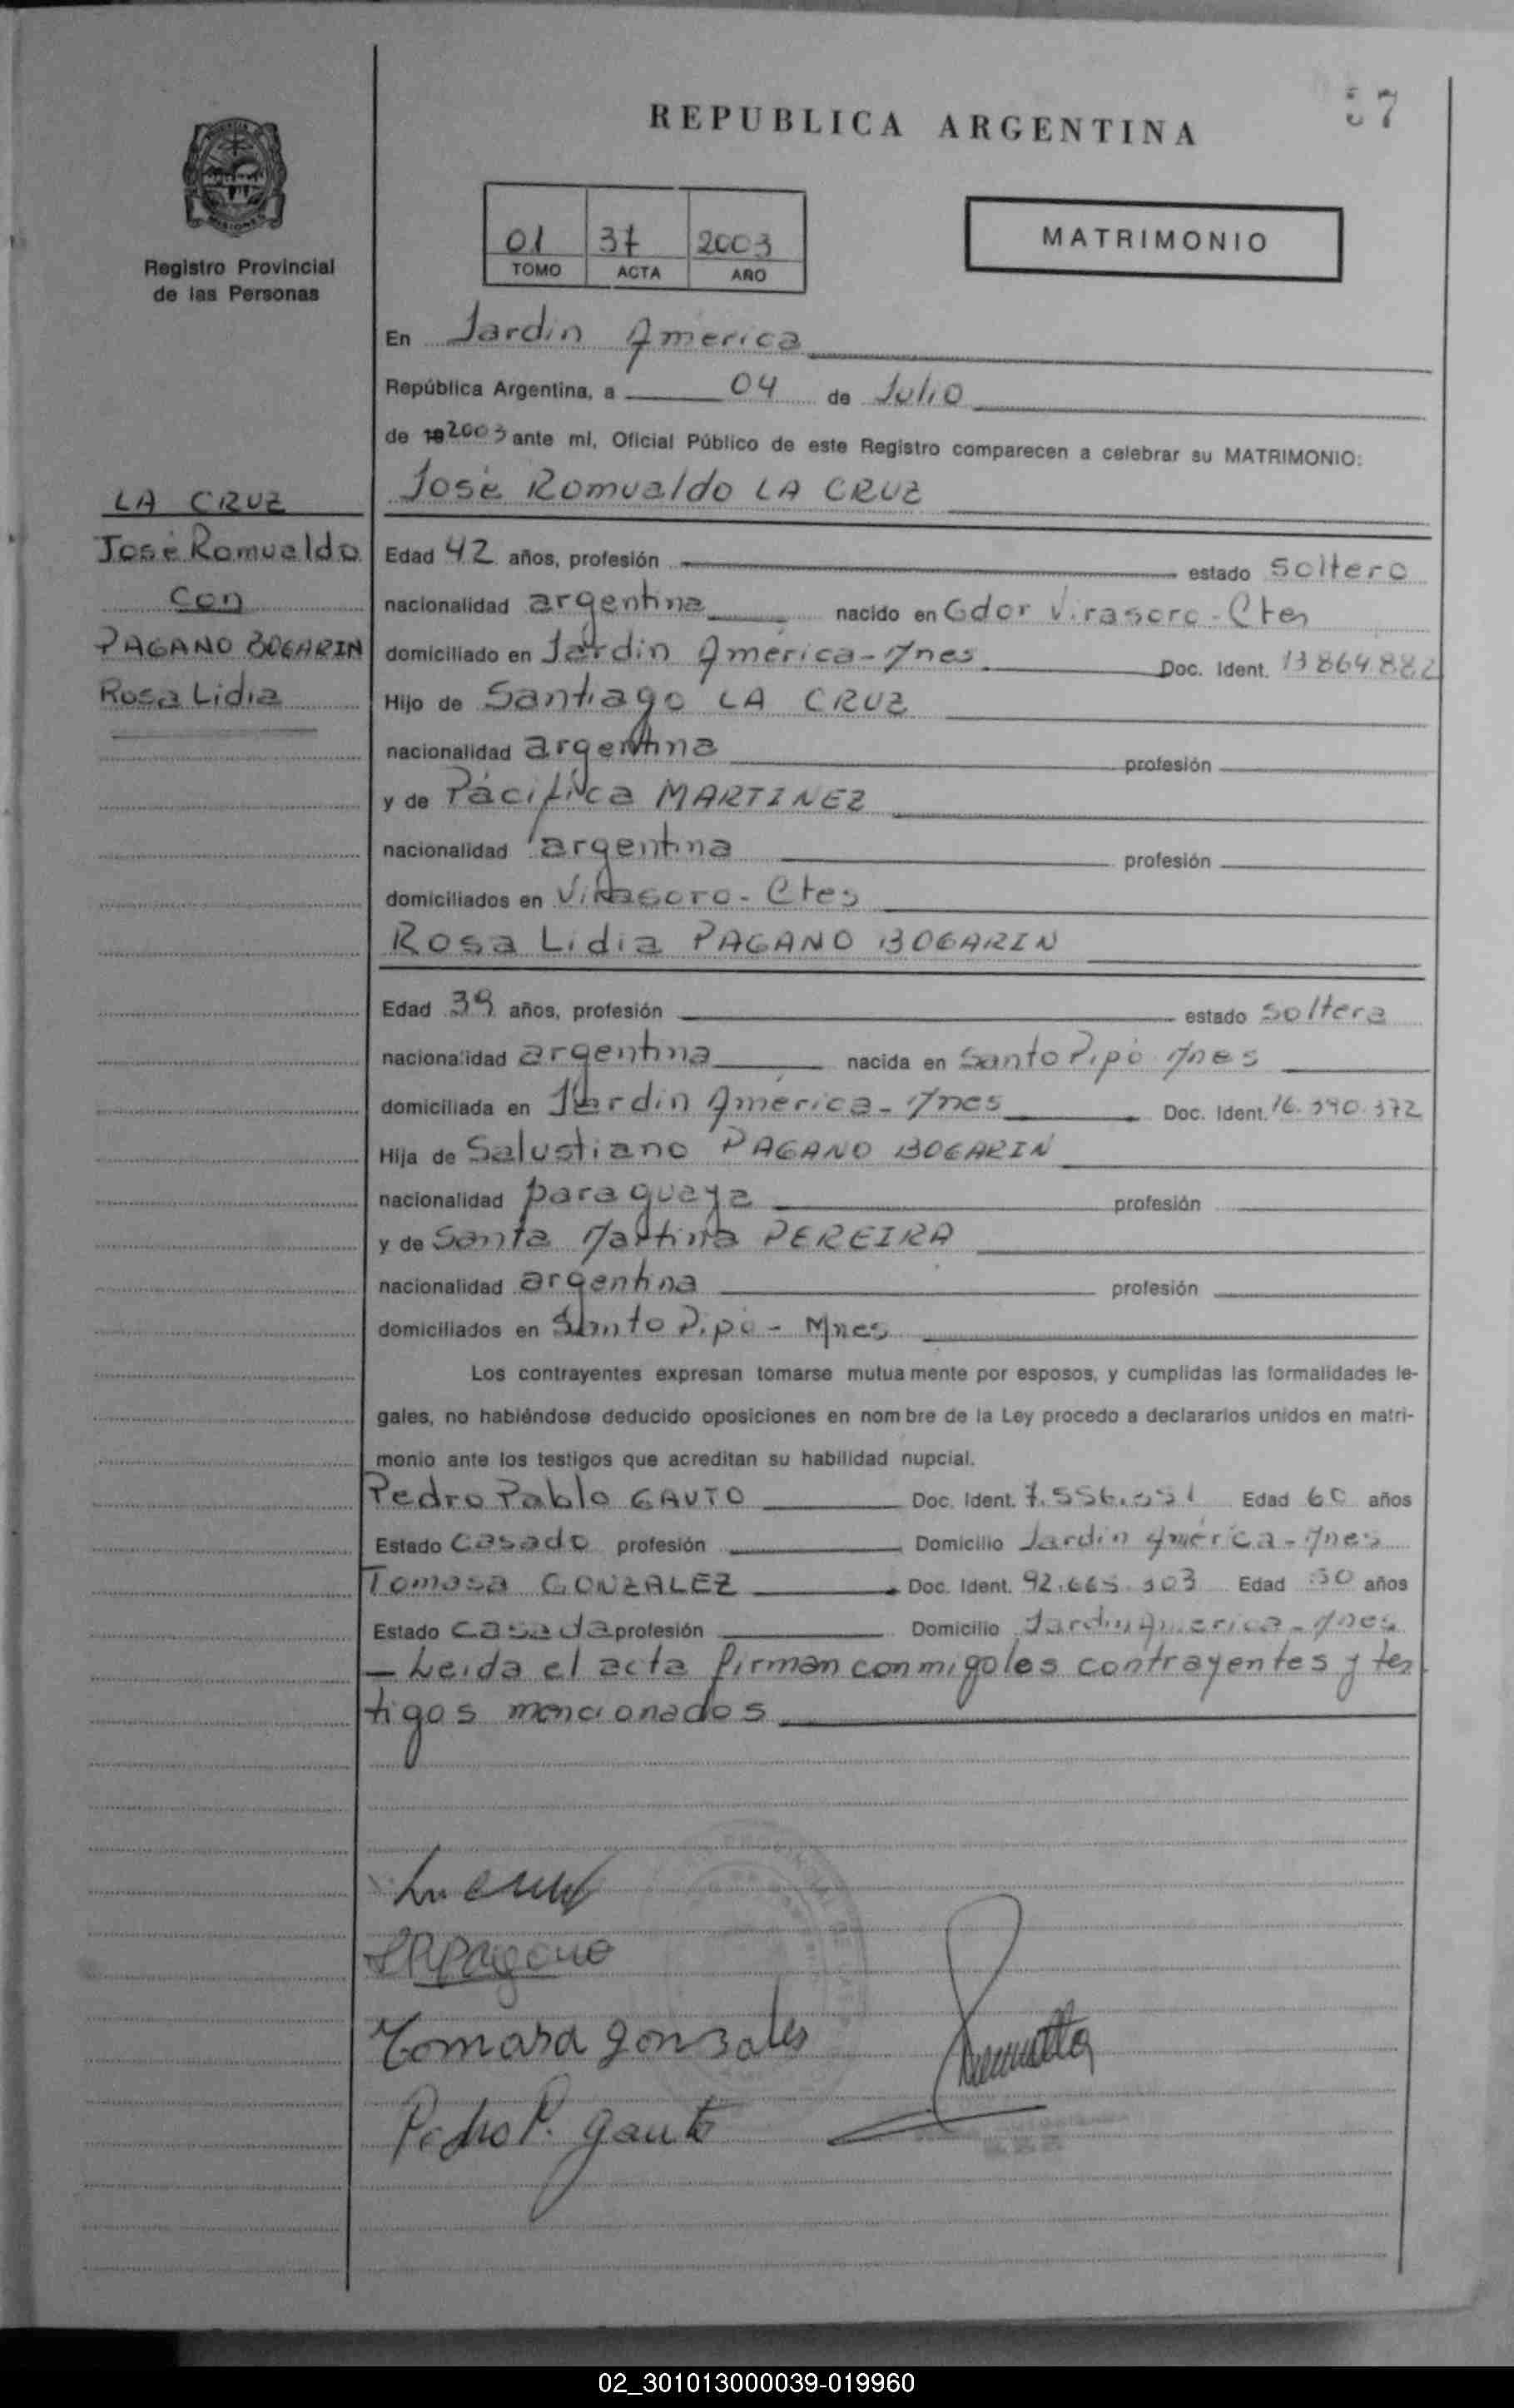 REPUBLICA ARGENTINA
37
Registro Provincial
de las Personas
01 37 2003
TOMO ACTA AÑO
MATRIMONIO
En Jardin America
República Argentina, a 04 de Julio
de 19 2003 ante mí, Oficial Público de este Registro comparecen a celebrar su MATRIMONIO:
José Romualdo LA CRUZ
LA CRUZ
José Romualdo
con
PAGANO BOGARIN
Rosa Lidia
Edad 42 años, profesión estado soltero
nacionalidad argentina nacido en Gdor Virasoro - Ctes
domiciliado en Jardin América - Mnes Doc. Ident. 13864.882
Hijo de Santiago LA CRUZ
nacionalidad argentina profesión
y de Pácifica MARTINEZ
nacionalidad argentina profesión
domiciliados en Virasoro - Ctes
Rosa Lidia PAGANO BOGARIN
Edad 39 años, profesión estado soltera
nacionalidad argentina nacida en Santo Pipó Mnes
domiciliada en Jardin América - Mnes Doc. Ident.
Hija de Salustiano PAGANO BOGARIN
nacionalidad paraguaya profesión
y de Santa Martina PEREIRA
nacionalidad argentina profesión
domiciliados en Santo Pipó - Mnes
Los contrayentes expresan tomarse mutuamente por esposos, y cumplidas las formalidades le-
gales, no habiéndose deducido oposiciones en nombre de la Ley procedo a declararlos unidos en matri-
monio ante los testigos que acreditan su habilidad nupcial.
Pedro Pablo GAUTO Doc. Ident. Edad 60 años
Estado Casado profesión Domicilio Jardin América - Mnes
Tomasa GONZALEZ Doc. Ident. Edad años
Estado Casada profesión Domicilio Jardin America - Mnes
- Leida el acta firman conmigo los contrayentes y tes
tigos mencionados
Tomasa gonzales
Pedro P. gauto
02_301013000039-019960